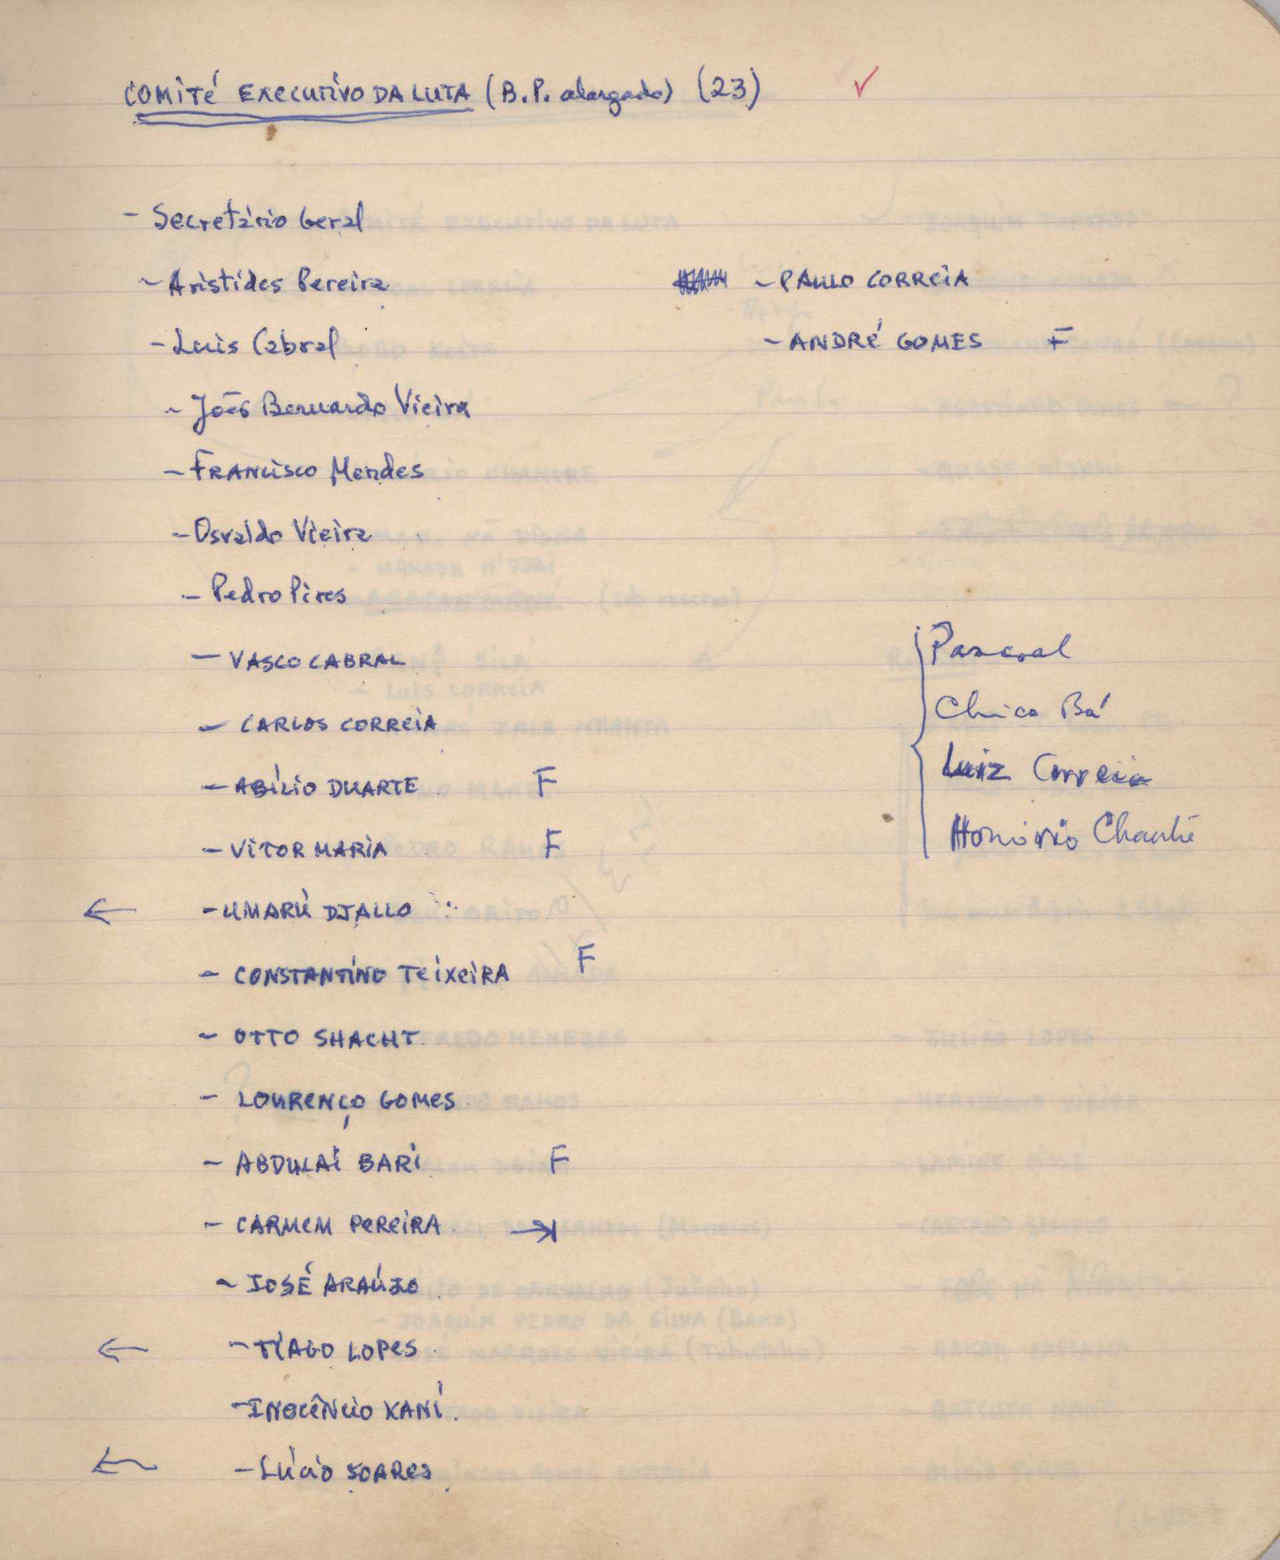 COMITÉ EXECUTIVO DA LUTA (B.P. alargado) (23)
- Secretário Geral
- Aristides Pereira
- Luis Cabral
- João Bernardo Vieira
- FRANCISCO Mendes
- Osvaldo Vieira
- Pedro Pires
- VASCO CABRAL
- CARLOS CORREIA
- ABÍLIO DUARTE F
- VITOR MARIA F
← - UMARÚ DJALLO
- CONSTANTINO TEIXEIRA F
- OTTO SHACHT
- LOURENÇO GOMES
- ABDULAI BARI F
- CARMEM PEREIRA →
- JOSÉ ARAÚJO
← - TIAGO LOPES
- INOCÊNCIO KANÍ.
← - LÚCIO SOARES
- PAULO CORREIA
- ANDRÉ GOMES F
Pascoal
Chico Bá
Luiz Correia
Honório Chantre